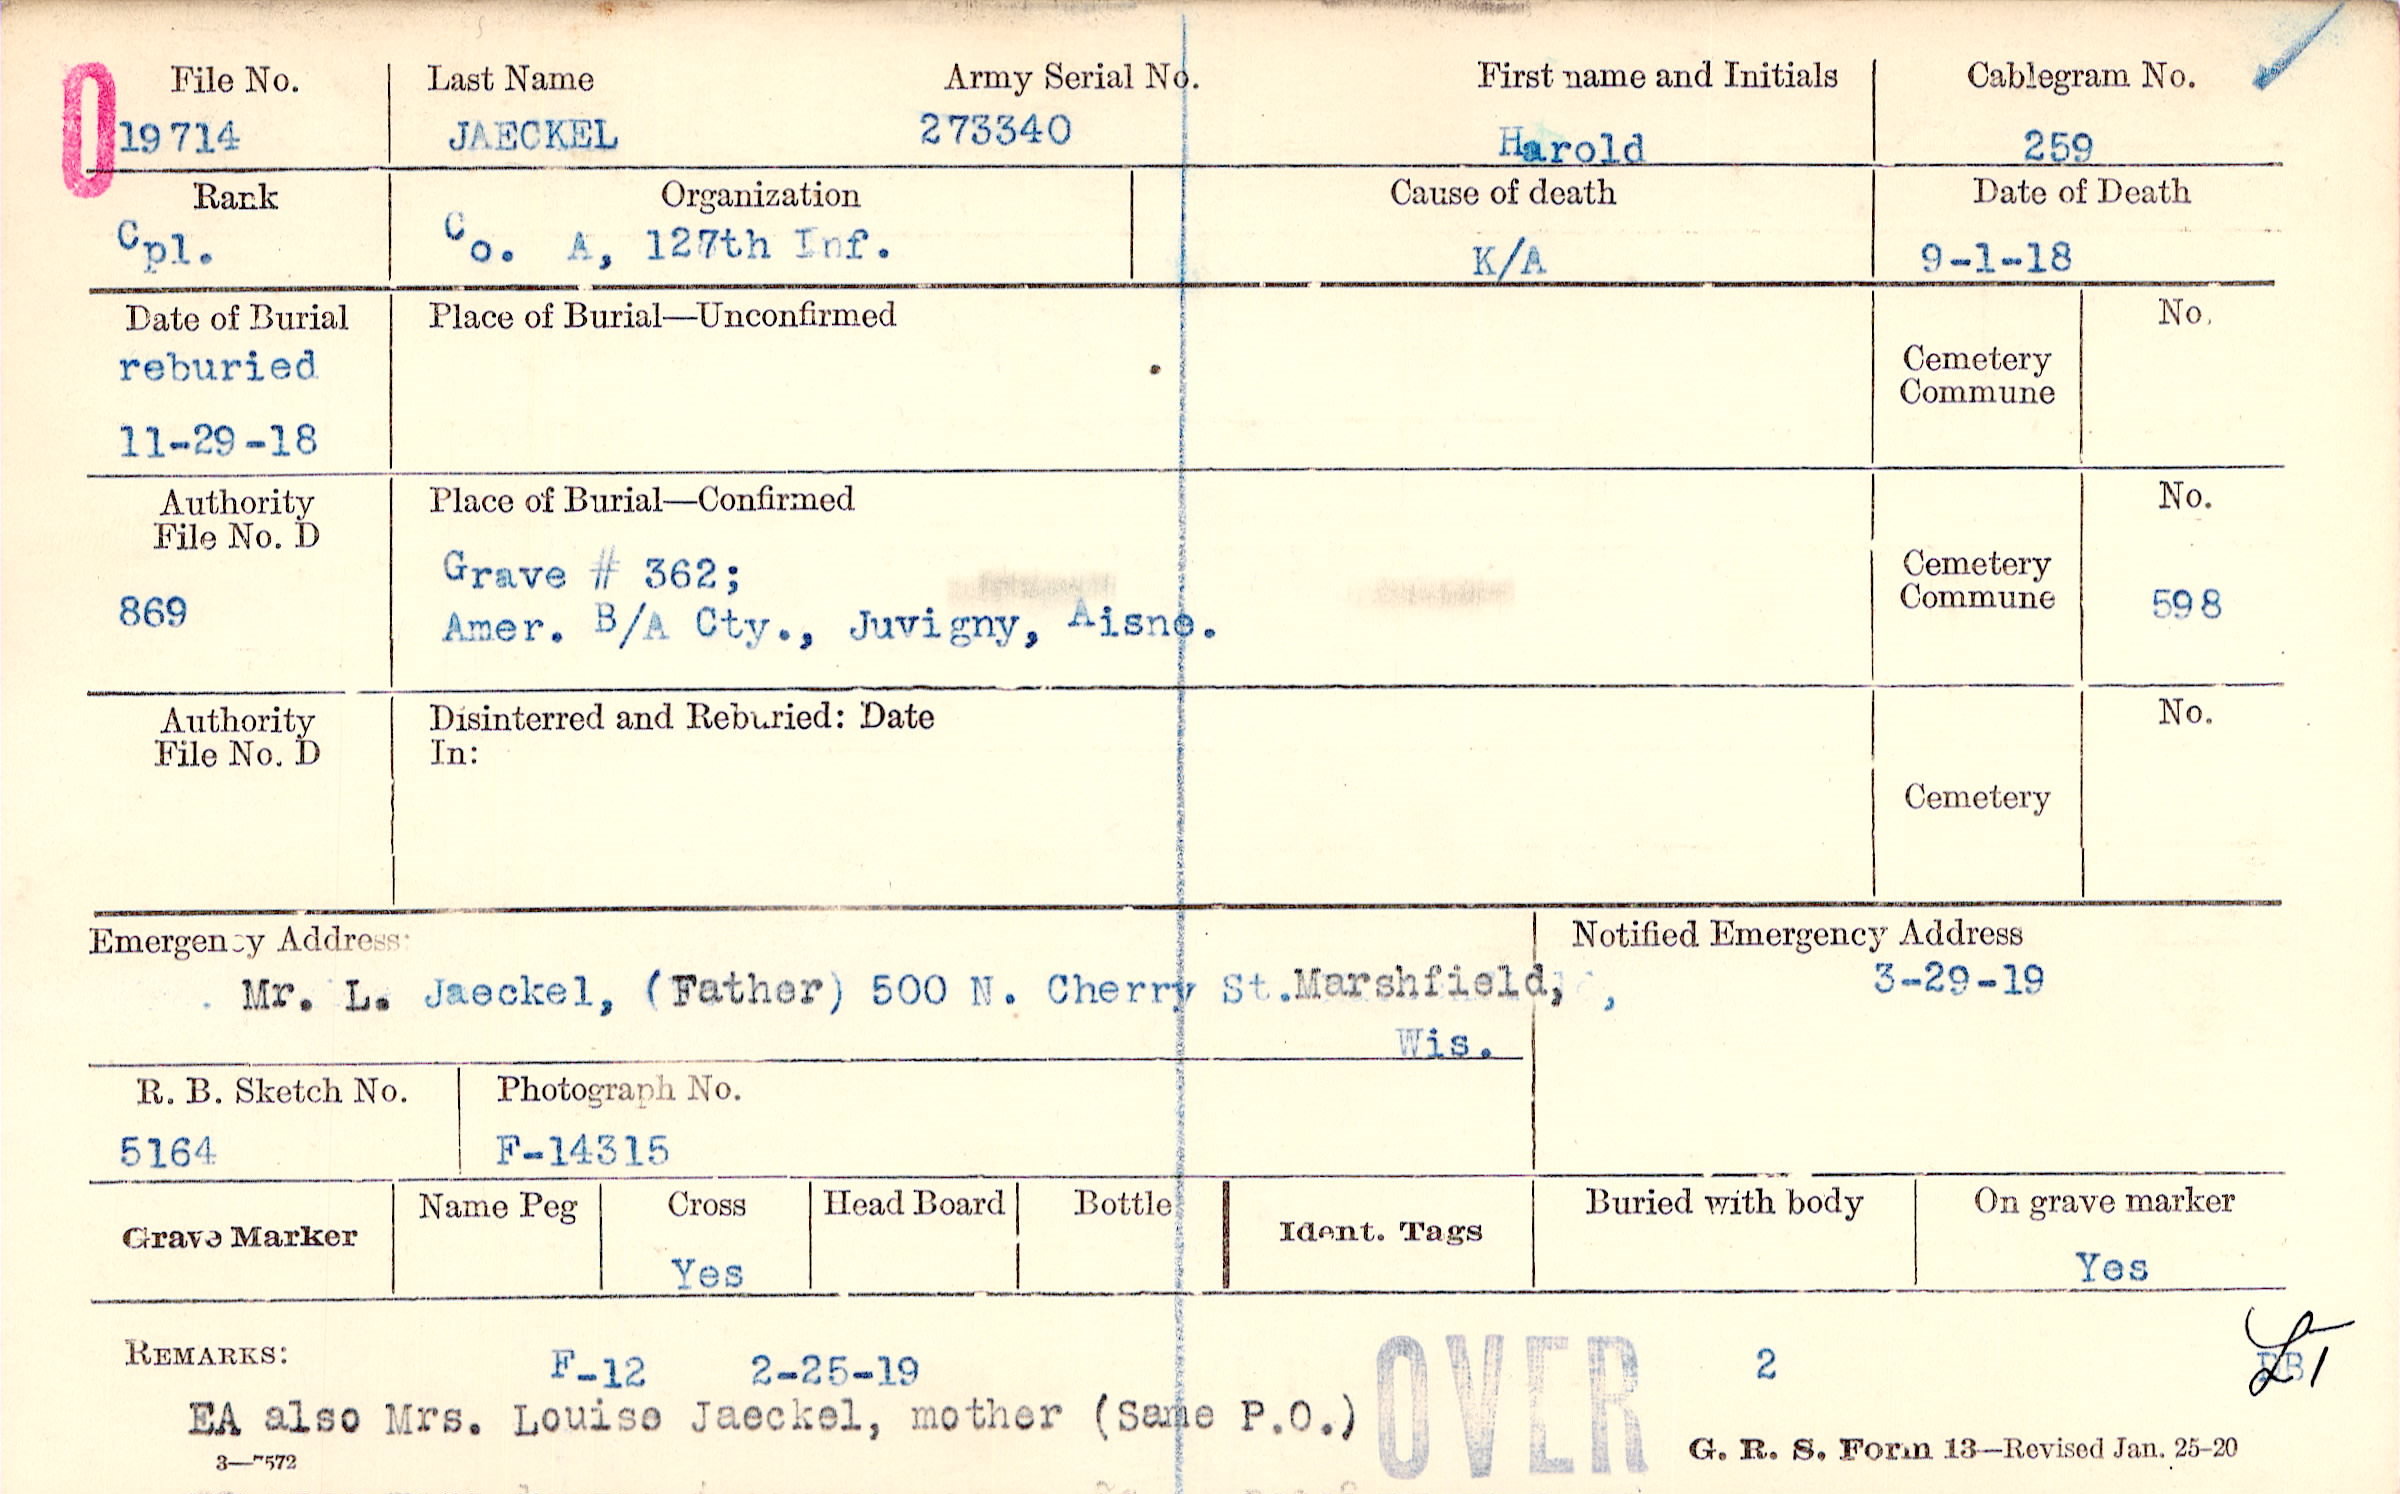 File No. Last Name Army Serial No. First name and Initials Cablegram No.
0 19714 JAECKEL 273340 Harold 259
Rank Organization Cause of death Date of Death
Cpl. Co. A, 127th Inf. K/A 9-1-18
Date of Burial Place of Burial—Unconfirmed No.
reburied Cemetery
Commune
11-29-18
Authority Place of Burial—Confirmed No.
File No. D
Grave # 362; Cemetery
869 Commune 598
Amer. B/A Cty., Juvigny, Aisne.
Authority Disinterred and Reburied: Date No.
File No. D In:
Cemetery
Emergency Address: Notified Emergency Address
Mr. L. Jaeckel, (Father) 500 N. Cherry St. Marshfield, 3-29-19
Wis.
R. B. Sketch No. Photograph No.
5164 F-14315
Name Peg Cross Head Board Bottle Buried with body On grave marker
Grave Marker Ident. Tags
Yes Yes
REMARKS: F-12 2-25-19 OVER 2
EA also Mrs. Louise Jaeckel, mother (Same P.O.)
3—7572 G. R. S. Form 13—Revised Jan. 25-20